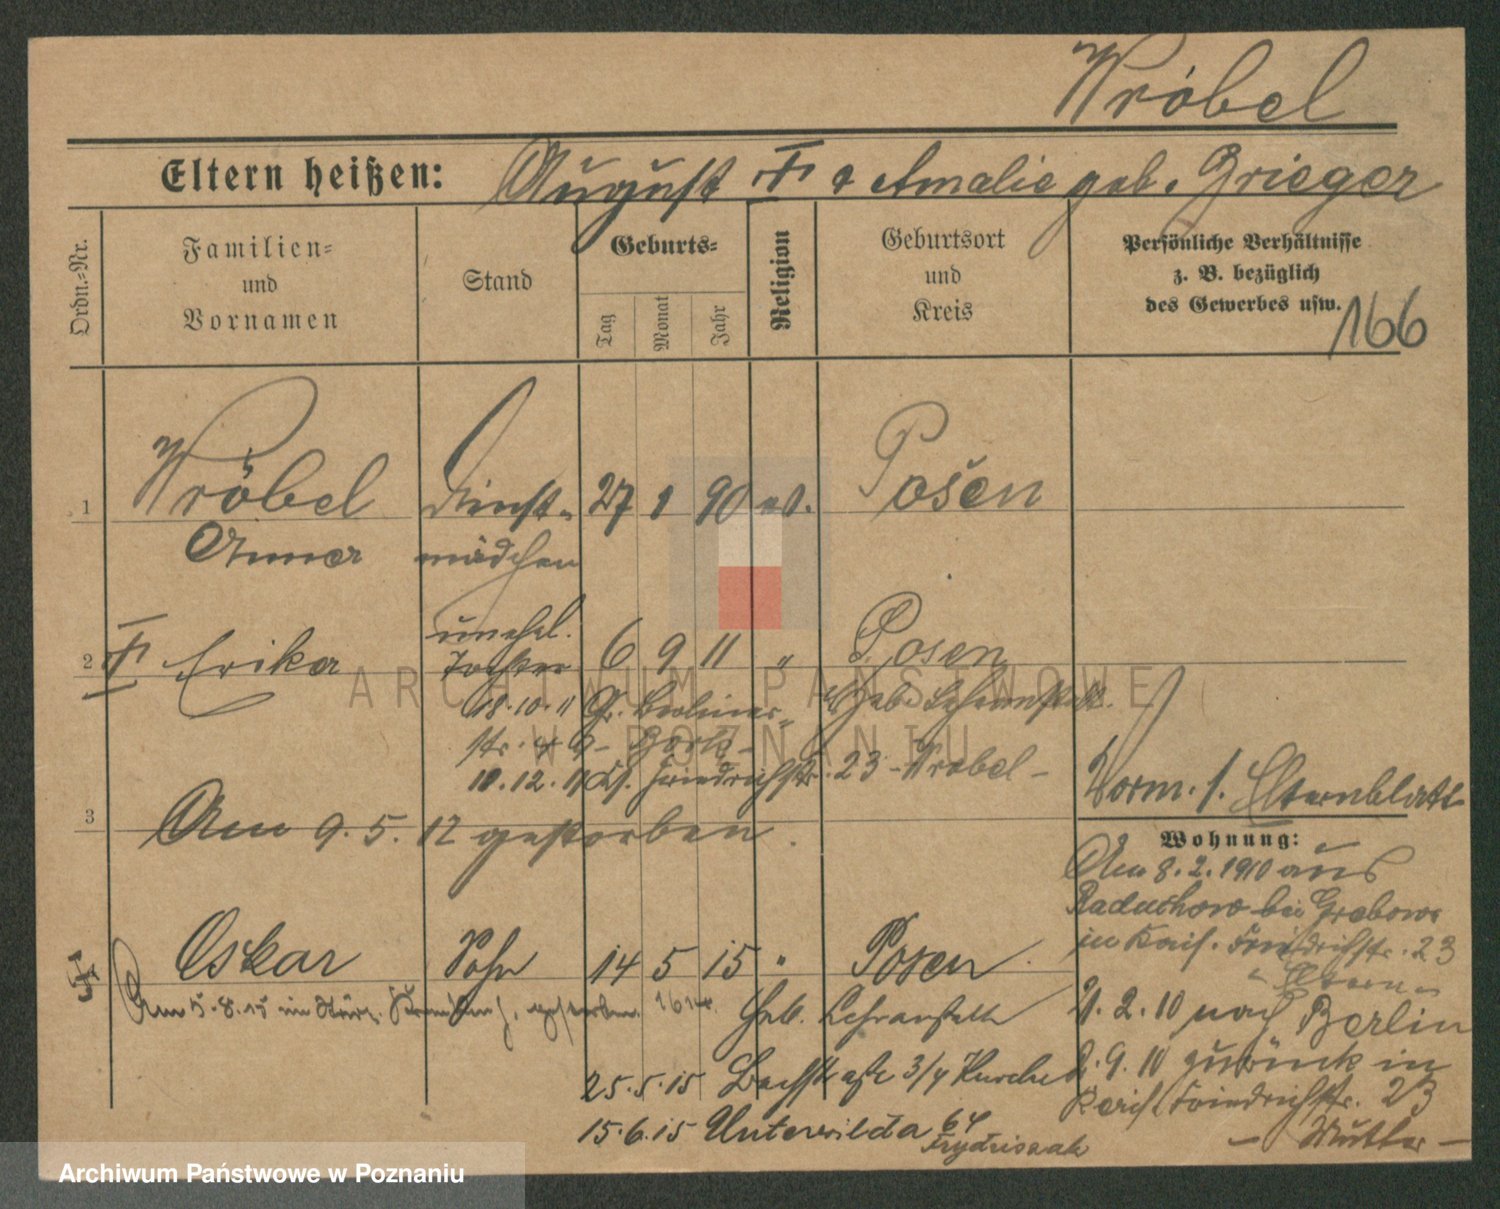 Wróbel
Eltern heißen: August † & Amalie geb. Grieger
Ordn.-Nr.
Familien-
und
Vornamen
Stand
Geburts-
Tag
Monat
Jahr
Religion
Geburtsort
und
Kreis
Persönliche Verhältnisse
z. B. bezüglich
des Gewerbes usw.
166
1 Wróbel Dienst- 27 1 90 ev. Posen
Anna mädchen
unehel.
2 † Erika Tochter 6 9 11 " Posen
18.10.11 Gr. Berliner- Geb.
str.
10.12.11 Friedrichstr. 23 - Wrobel -
Vorm. s. Elternblatt
3 Am 9.5.12 gestorben.
Wohnung:
Am 8.2.1910 aus
Raduchowo bei Grabow
in Kais. Friedrichstr. 23
- Eltern -
† Oskar Sohn 14 5 15 " Posen
Am 5.8.15 im gestorben.
Geb. Lehranstalt
21.2.10 nach Berlin
2.9.10 zurück in
Friedrichstr. 23
- Mutter -
25.5.15 3/4
15.6.15 Unterwilda 64
ARCHIWUM PAŃSTWOWE
W POZNANIU
Archiwum Państwowe w Poznaniu